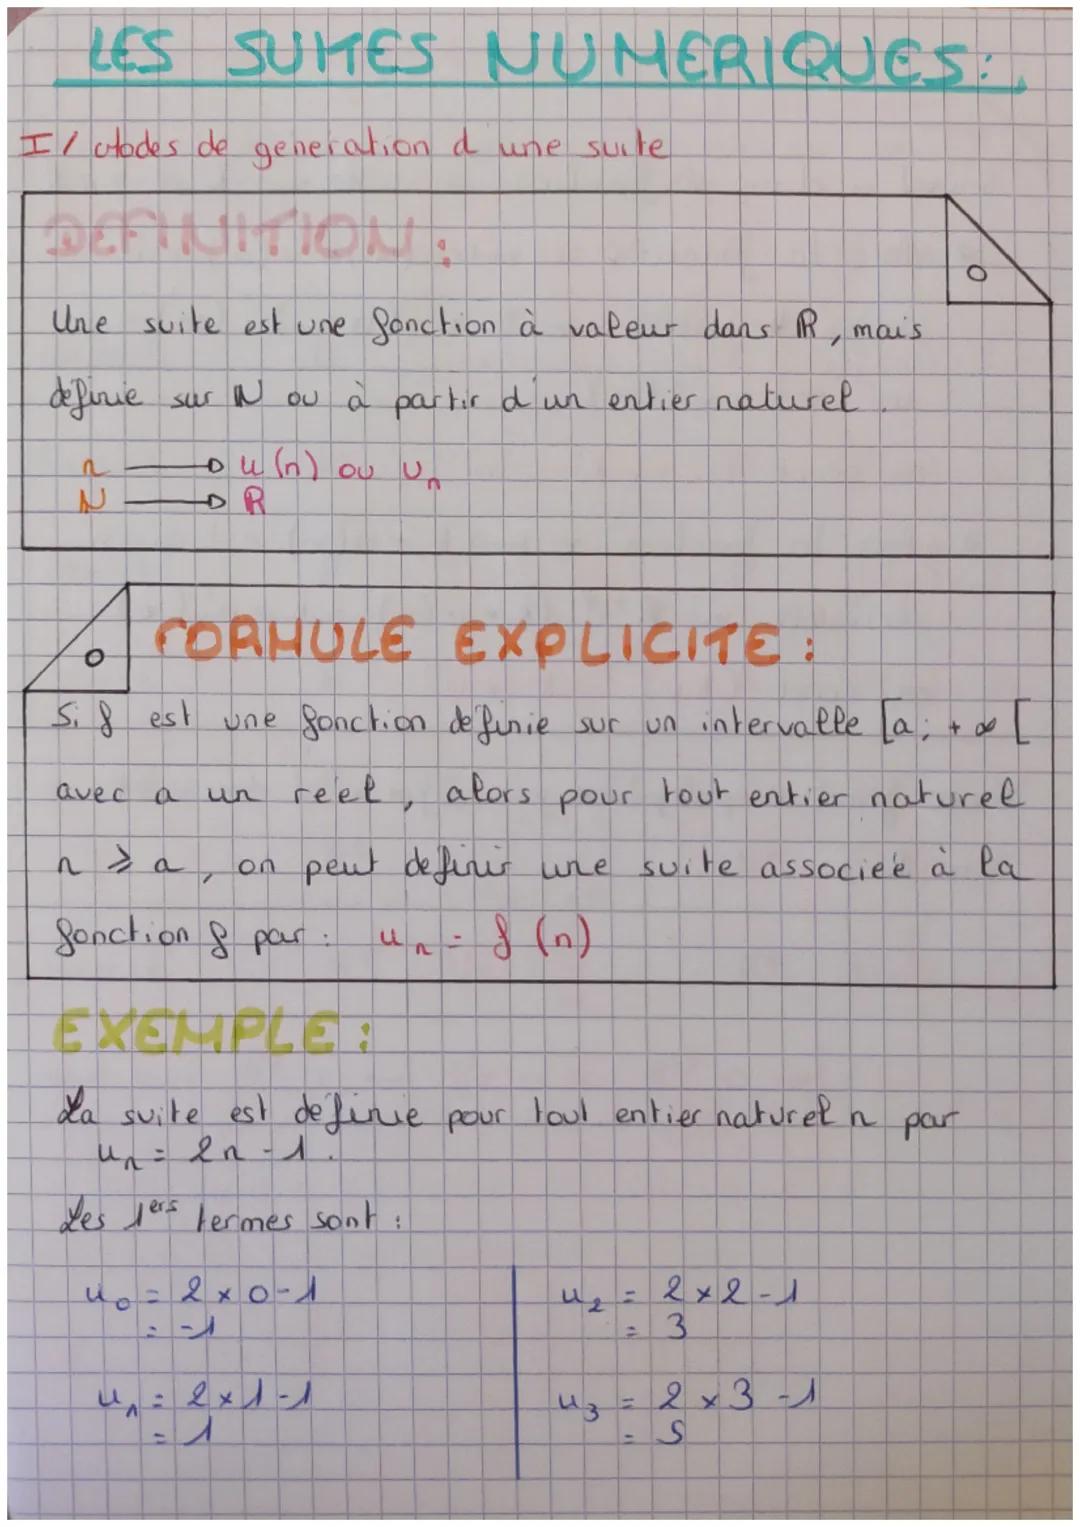 LES SUITES NUMERIQUES:
I/ Modes de generation d une suite
DEFINITION:
Une suite est une fonction à valeur dans ℝ, mais
définie sur ℕ ou à partir d'un entier naturel.
n → u(n) ou Un
ℕ → ℝ
FORMULE EXPLICITE:
Si f est une fonction définie sur un intervalle [a; +∞[
avec a un réel, alors pour tout entier naturel
n ⩾ a, on peut définir une suite associée à la
fonction f par: un = f(n)
EXEMPLE:
La suite est définie pour tout entier naturel n par
un = 2n-1.
Les 1ers termes sont:
u0 = 2×0-1
= -1
u1 = 2×1-1
= 1
u2 = 2×2-1
= 3
u3 = 2×3-1
= 5